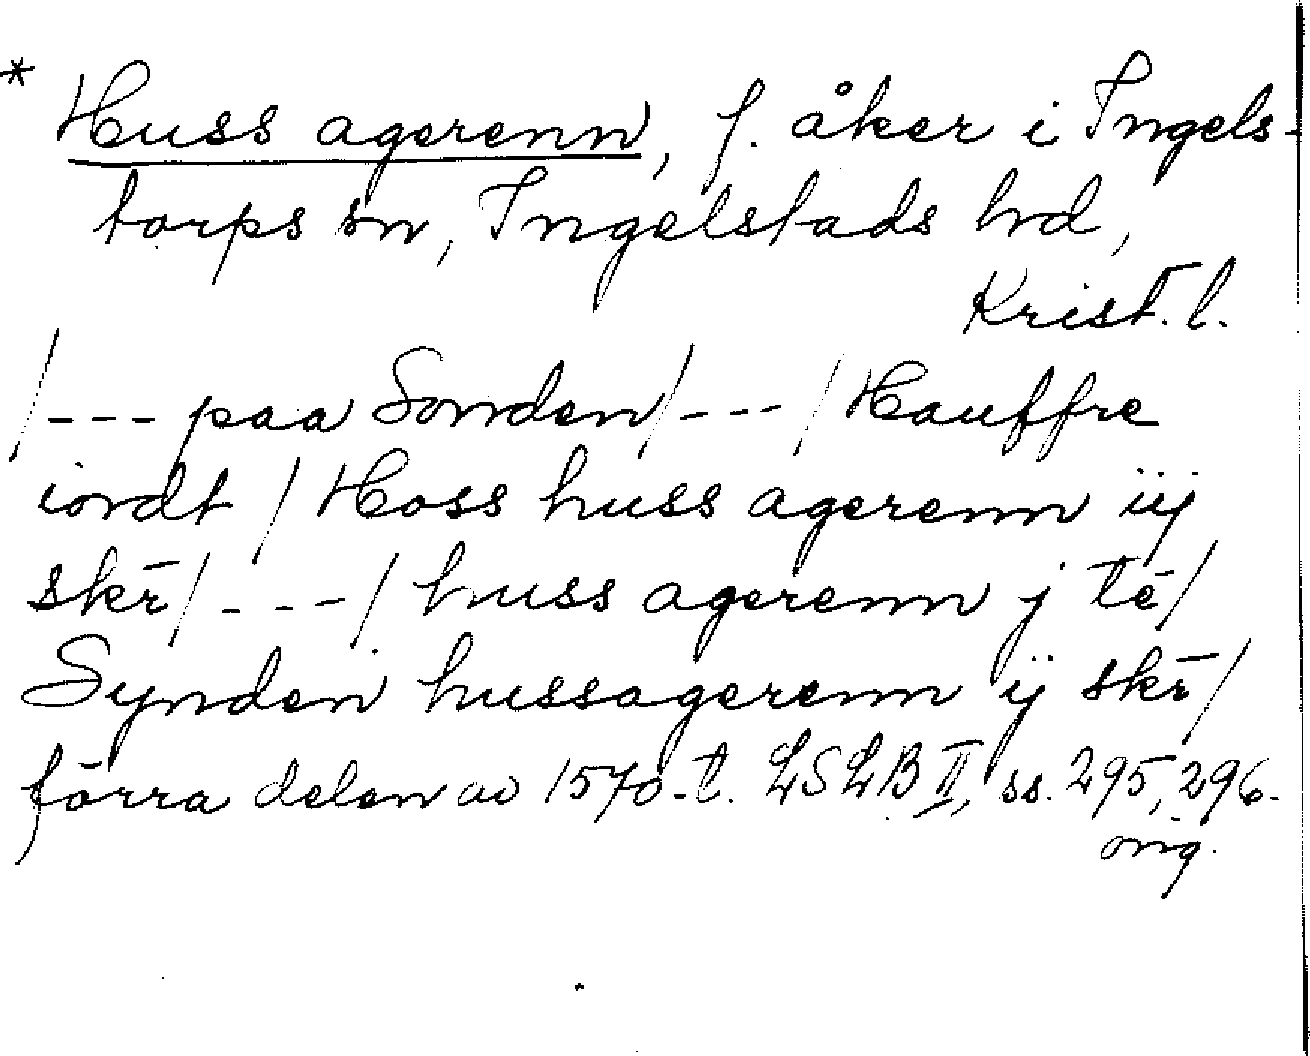 * Huss agerenn, f. åker i Ingels-
torps sn, Ingelstads hd,
Krist. l.
/--- paa Sonden/---/Hauffre
iordt / Hoss huss agerenn iij
skr̄/---/ huss agerenn j te̅/
Synden hussagerenn ij skr̄/
förra delen av 1570-t. LSLB II, ss. 295, 296.
orig.